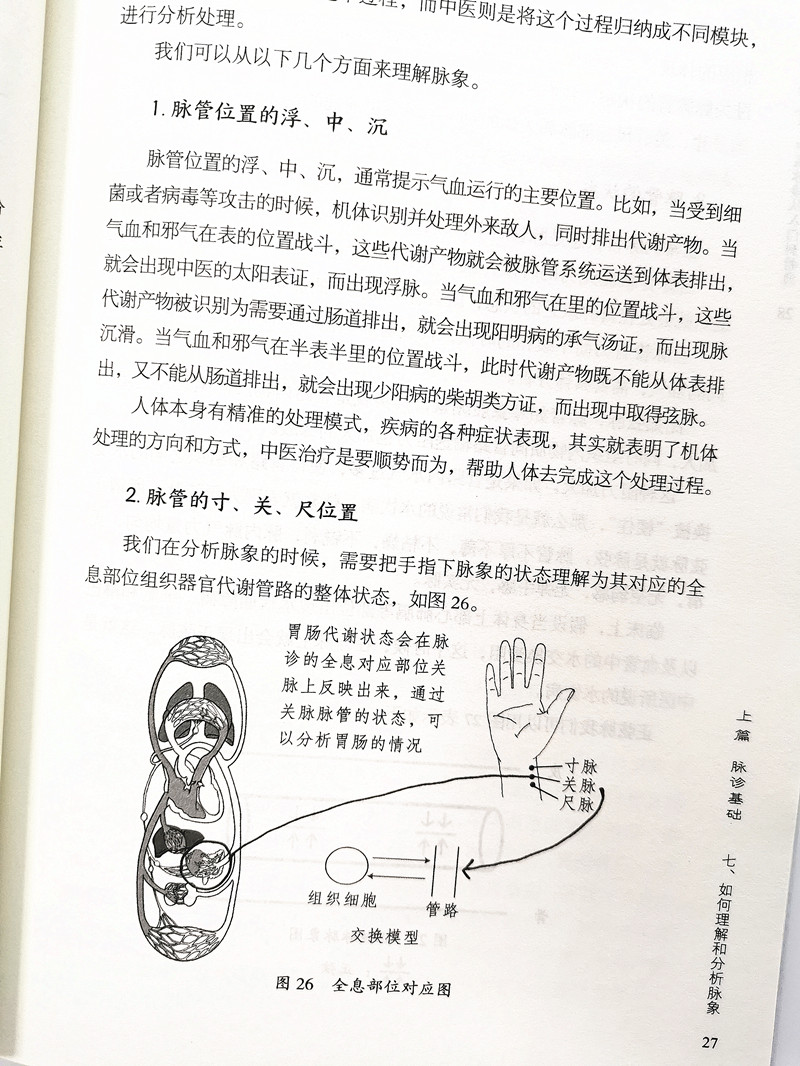 过程，而中医则是将这个过程归纳成不同模块，
进行分析处理。
我们可以从以下几个方面来理解脉象。
1. 脉管位置的浮、中、沉
脉管位置的浮、中、沉，通常提示气血运行的主要位置。比如，当受到细
菌或者病毒等攻击的时候，机体识别并处理外来敌人，同时排出代谢产物。当
气血和邪气在表的位置战斗，这些代谢产物就会被脉管系统运送到体表排出，
就会出现中医的太阳表证，而出现浮脉。当气血和邪气在里的位置战斗，这些
代谢产物被识别为需要通过肠道排出，就会出现阳明病的承气汤证，而出现脉
沉滑。当气血和邪气在半表半里的位置战斗，此时代谢产物既不能从体表排
出，又不能从肠道排出，就会出现少阳病的柴胡类方证，而出现中取得弦脉。
人体本身有精准的处理模式，疾病的各种症状表现，其实就表明了机体
处理的方向和方式，中医治疗是要顺势而为，帮助人体去完成这个处理过程。
2. 脉管的寸、关、尺位置
我们在分析脉象的时候，需要把手指下脉象的状态理解为其对应的全
息部位组织器官代谢管路的整体状态，如图 26。
胃肠代谢状态会在脉
诊的全息对应部位关
脉上反映出来，通过
关脉脉管的状态，可
以分析胃肠的情况
寸脉
关脉
尺脉
组织细胞
管路
交换模型
图 26 全息部位对应图
上篇 脉诊基础
七、如何理解和分析脉象
27